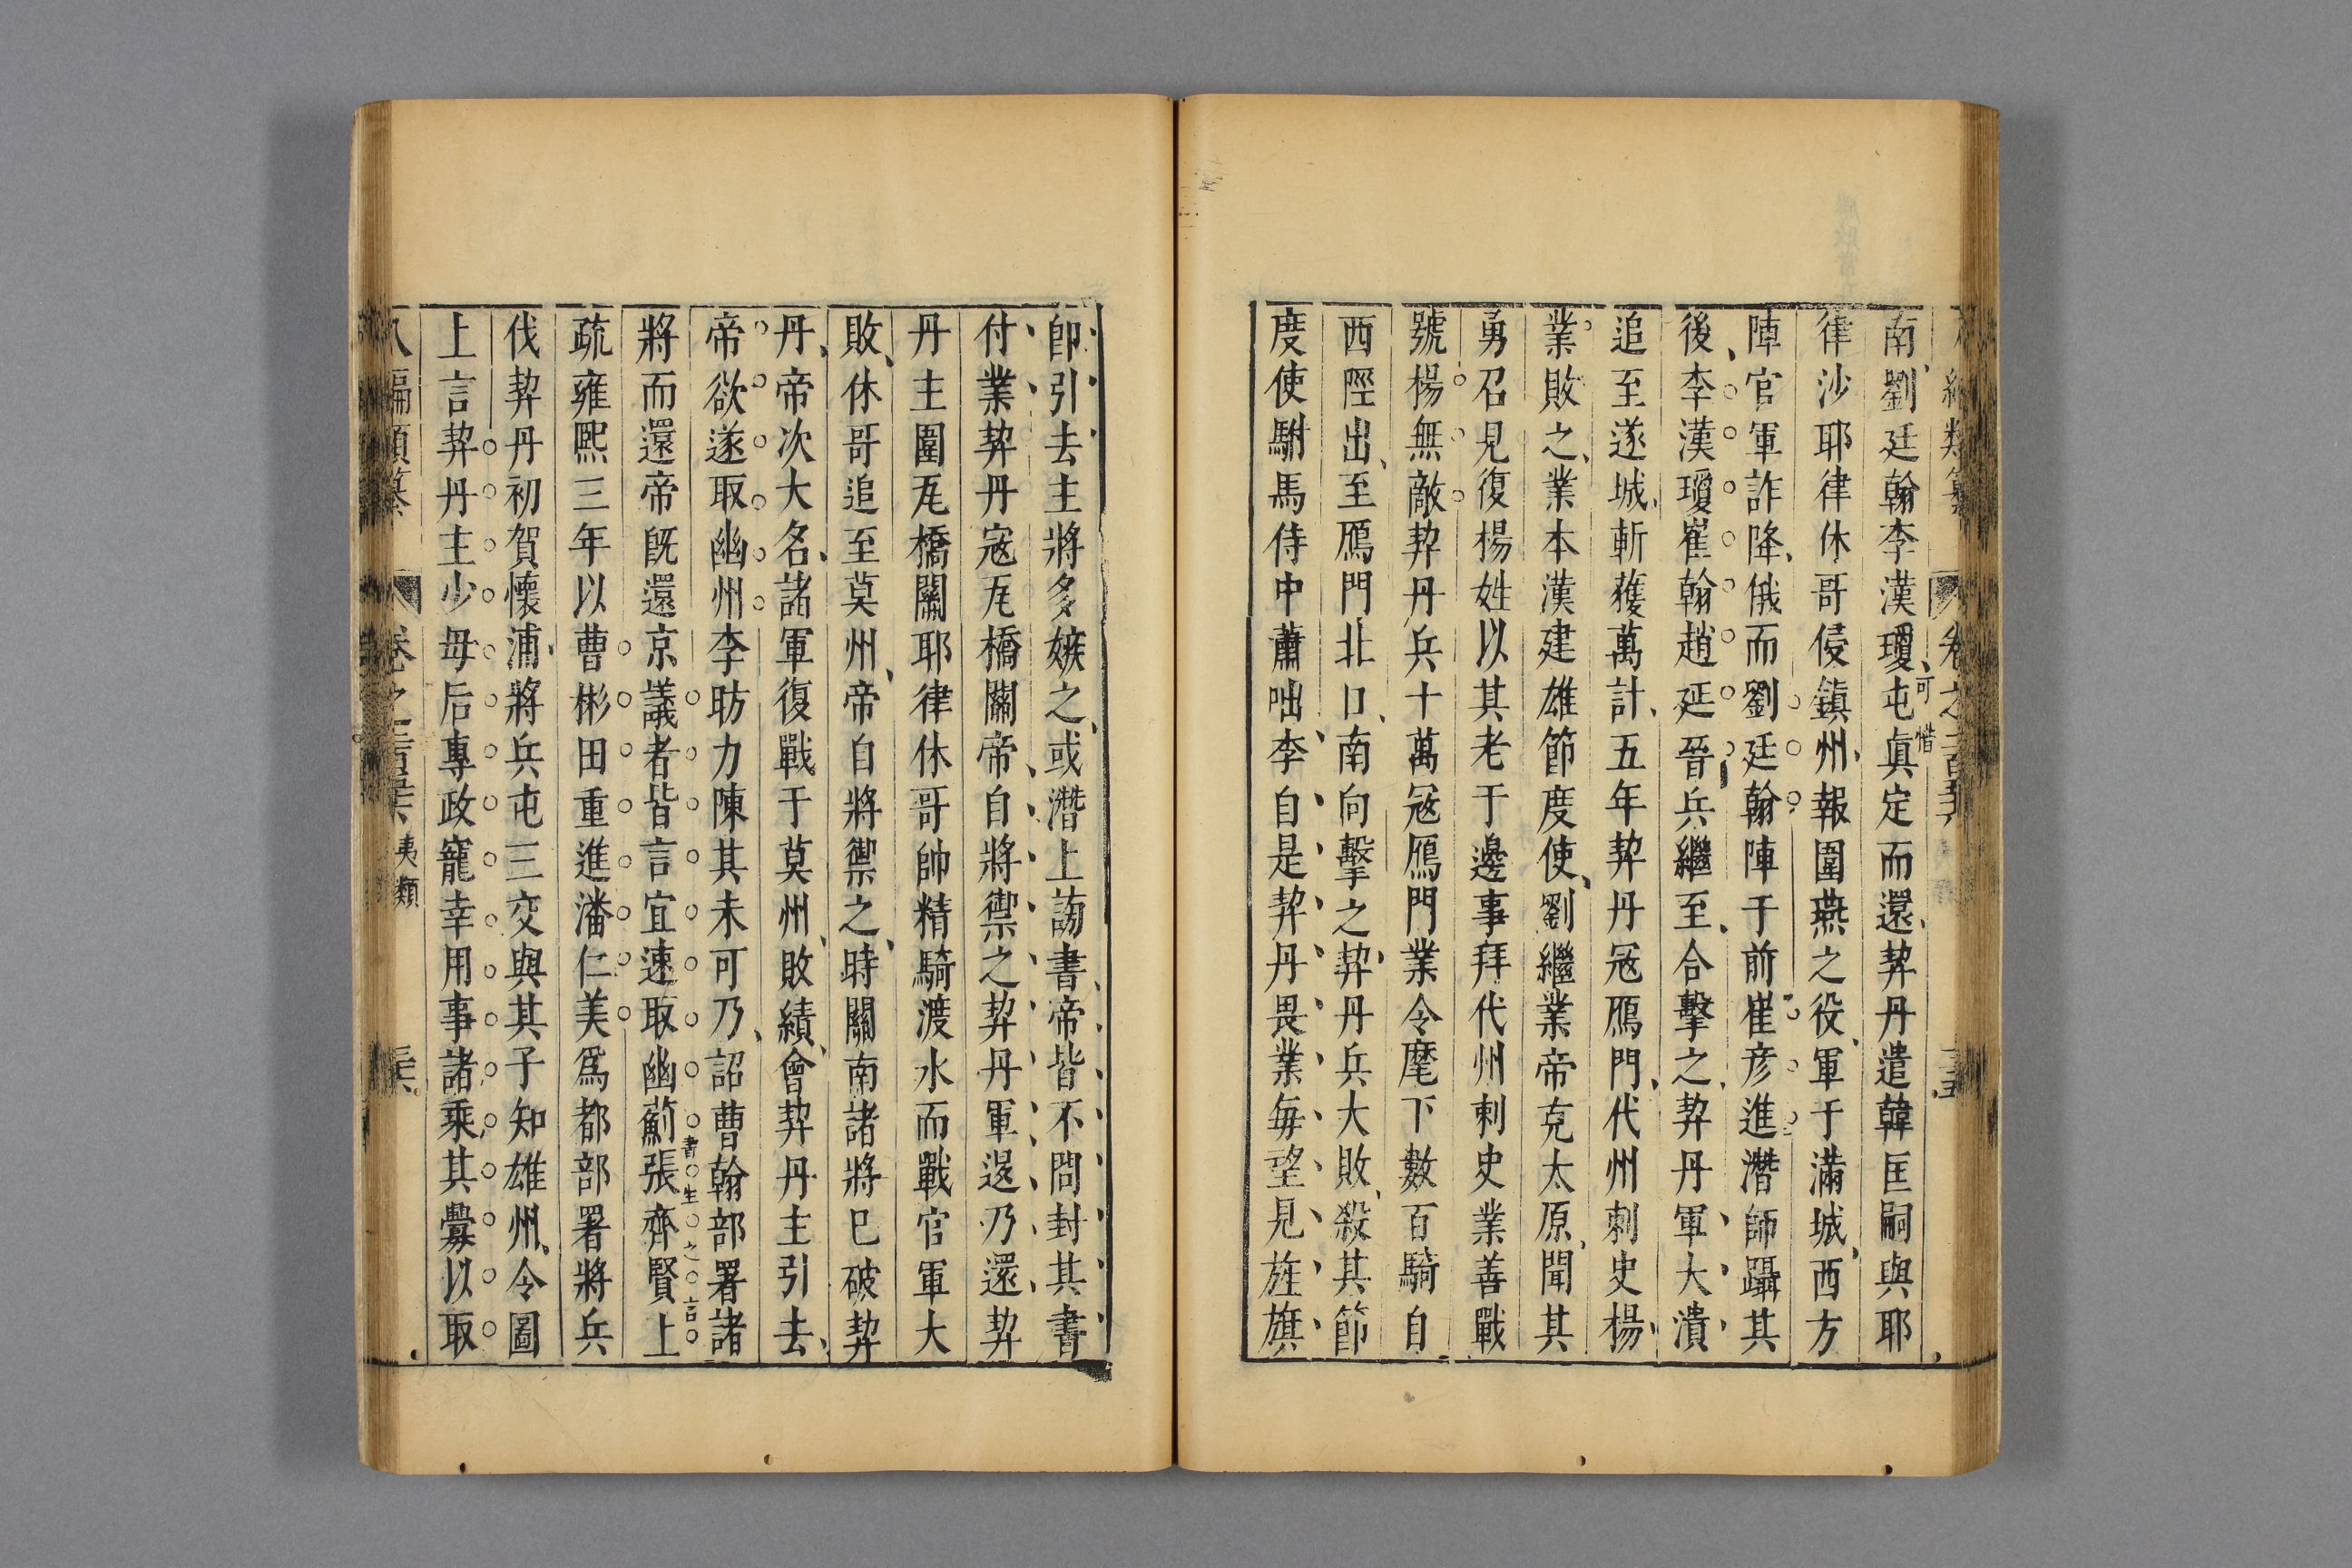 南劉廷翰李漢瓊屯眞定而還契丹遣韓匡嗣與耶
可惜
律沙耶律休哥侵鎮州報圍燕之役軍于滿城西方
陣官軍詐降俄而劉廷翰陣于前崔彦進潛師躡其
後李漢瓊崔翰趙延晉兵繼至合擊之契丹軍大潰
追至遂城斬獲萬計五年契丹冦鴈門代州刺史楊
業敗之業本漢建雄節度使劉繼業帝克太原聞其
勇召見復楊姓以其老于邊事拜代州刺史業善戰
號楊無敵契丹兵十萬冦鴈門業令麾下數百騎自
西陘出至鴈門北口南向擊之契丹兵大敗殺其節
度使駙馬侍中蕭咄李自是契丹畏業每望見旌旗
卽引去主將多嫉之或潛上謗書帝皆不問封其書
付業契丹寇瓦橋關帝自將禦之契丹軍退乃還契
丹主圍瓦橋關耶律休哥帥精騎渡水而戰官軍大
敗休哥追至莫州帝自將禦之時關南諸將已破契
丹帝次大名諸軍復戰于莫州敗績會契丹主引去
帝欲遂取幽州李昉力陳其未可乃詔曹翰部署諸
將而還帝旣還京議者皆言宜速取幽薊張齊賢上
書生之言
疏雍熙三年以曹彬田重進潘仁美爲都部署將兵
伐契丹初賀懷浦將兵屯三交與其子知雄州令圖
上言契丹主少母后專政寵幸用事諸乘其釁以取
編類纂 卷之 夷類